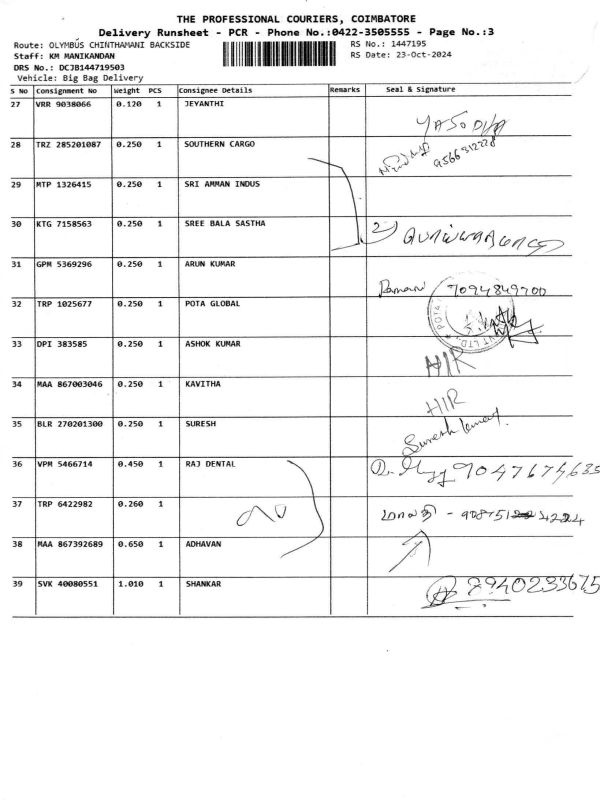 THE PROFESSIONAL COURIERS, COIMBATORE
Delivery Runsheet - PCR - Phone No.:0422-3505555 - Page No.:3
Route: OLYMBUS CHINTHAMANI BACKSIDE RS No.: 1447195
Staff: KM MANIKANDAN RS Date: 23-Oct-2024
DRS No.: DCJB144719503
Vehicle: Big Bag Delivery
S No Consignment No Weight PCS Consignee Details Remarks Seal & Signature
27 VRR 9038066 0.120 1 JEYANTHI
YASODHA
28 TRZ 285201087 0.250 1 SOUTHERN CARGO
29 MTP 1326415 0.250 1 SRI AMMAN INDUS
30 KTG 7158563 0.250 1 SREE BALA SASTHA
31 GPM 5369296 0.250 1 ARUN KUMAR
Ramani 7094849700
32 TRP 1025677 0.250 1 POTA GLOBAL
33 DPI 383585 0.250 1 ASHOK KUMAR
HIR
34 MAA 867003046 0.250 1 KAVITHA
HIR
35 BLR 270201300 0.250 1 SURESH
Suresh
36 VPM 5466714 0.450 1 RAJ DENTAL 9047674635
37 TRP 6422982 0.260 1 மாலதி
38 MAA 867392689 0.650 1 ADHAVAN
39 SVK 40080551 1.010 1 SHANKAR 8940233675